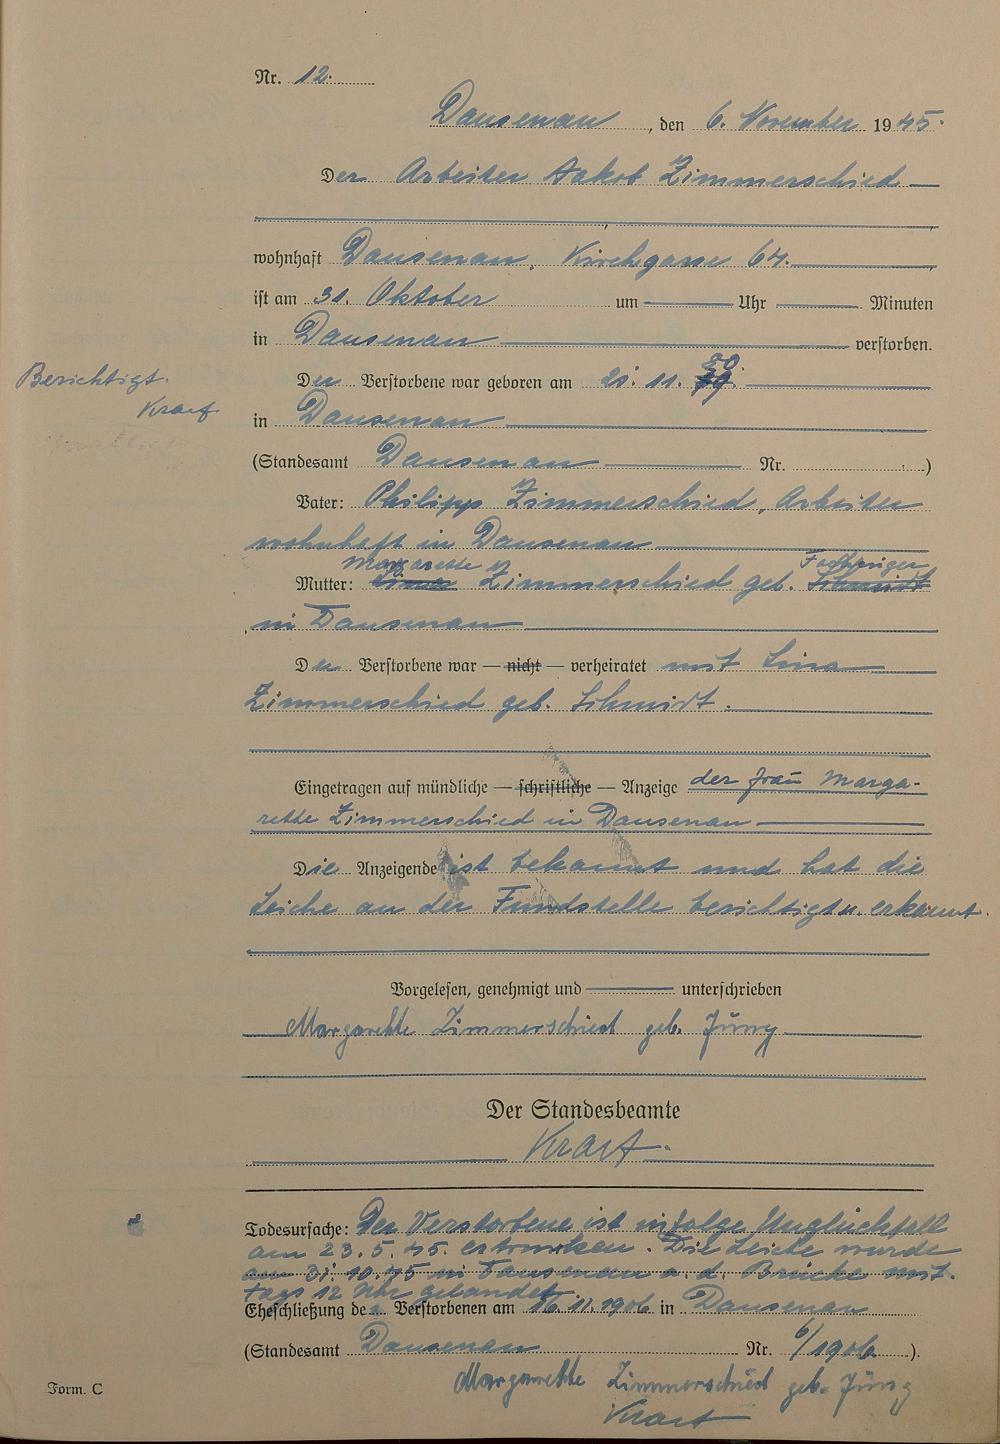 Nr. 12.
Dausenau, den 6. November 1945.
Der Arbeiter Jakob Zimmerschied
wohnhaft Dausenau, Kirchgasse 64.
ist am 31. Oktober um Uhr Minuten
in Dausenau verstorben.
Berichtigt.
Kraft
80
Der Verstorbene war geboren am 21. 11.
in Dausenau
(Standesamt Dausenau Nr. )
Vater: Philipp Zimmerschied, Arbeiter
wohnhaft in Dausenau
Margarethe Fachinger
Mutter: Lina Zimmerschied geb. Schmidt
in Dausenau
Der Verstorbene war — nicht — verheiratet mit Lina
Zimmerschied geb. Schmidt.
Eingetragen auf mündliche — schriftliche — Anzeige der Frau Marga-
rethe Zimmerschied in Dausenau
Die Anzeigende ist bekannt und hat die
Leiche an der Fundstelle besichtigt u. erkannt.
Vorgelesen, genehmigt und unterschrieben
Margarethe Zimmerschied geb. Jüng
Der Standesbeamte
Kraft.
Todesursache: Der Verstorbene ist infolge Unglücksfall
am 23. 5. 45. ertrunken. Die Leiche wurde
am 31. 10. 45 in Dausenau a. d. Brücke mit-
tags 12 Uhr geländet.
Eheschließung des Verstorbenen am 16. 11. 1906 in Dausenau
(Standesamt Dausenau Nr. 6/1906).
Margarethe Zimmerschied geb. Jüng
Kraft
Form. C